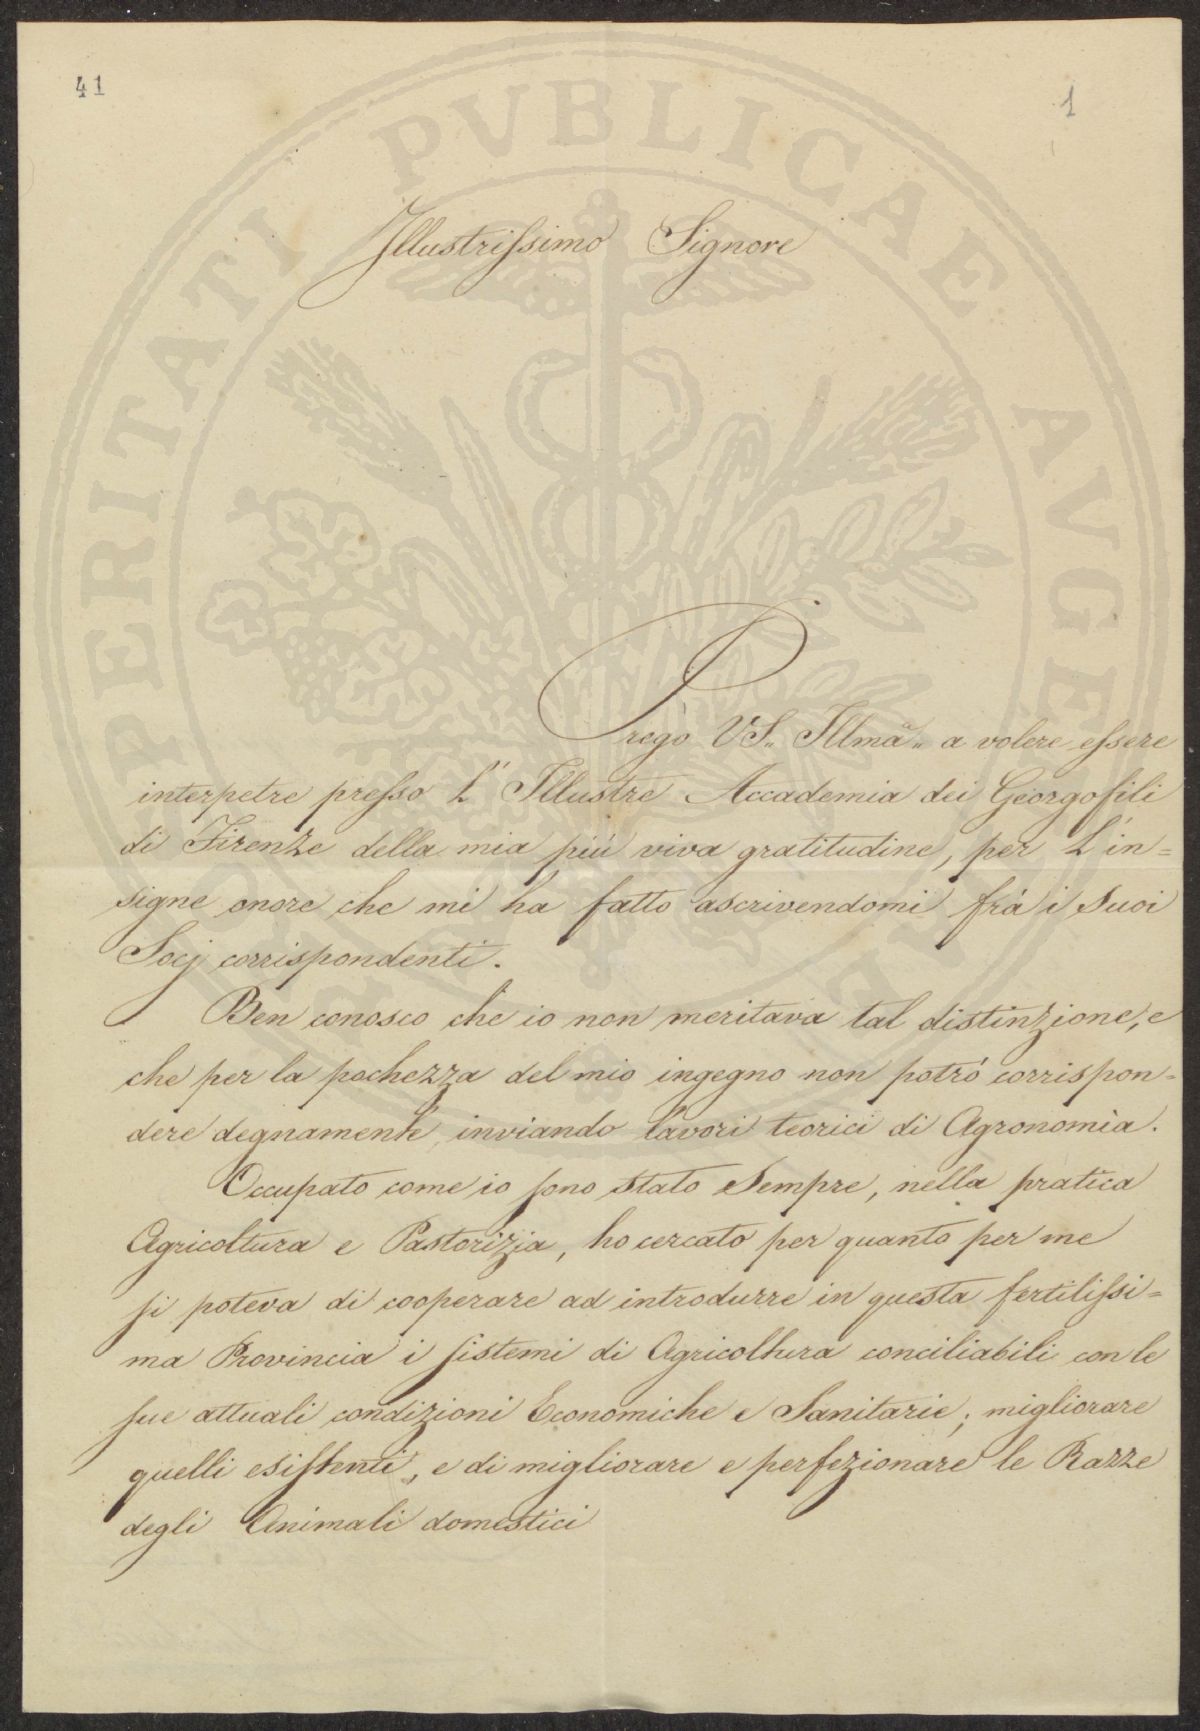 41
1
PROSPERITATI PVBLICAE AVGENDAE
Illustrissimo Signore
Pregò VS.. Illma.. a volere essere
interpetre presso L' Illustre Accademia dei Georgofili
di Firenze della mia più viva gratitudine, per L'in=
signe onore che mi ha fatto ascrivendomi frà i Suoi
Socj corrispondenti.
Ben conosco che io non meritava tal distinzione, e
che per la pochezza del mio ingegno non potrò corrispon=
dere degnamente inviando lavori teorici di Agronomìa.
Occupato come io sono stato Sempre, nella pratica
Agricoltura e Pastorizia, ho cercato per quanto per me
si poteva di cooperare ad introdurre in questa fertilissi=
ma Provincia i sistemi di Agricoltura conciliabili con le
sue attuali condizioni Economiche e Sanitarie; migliorare
quelli esistenti, e di migliorare e perfezionare le Razze
degli Animali domestici